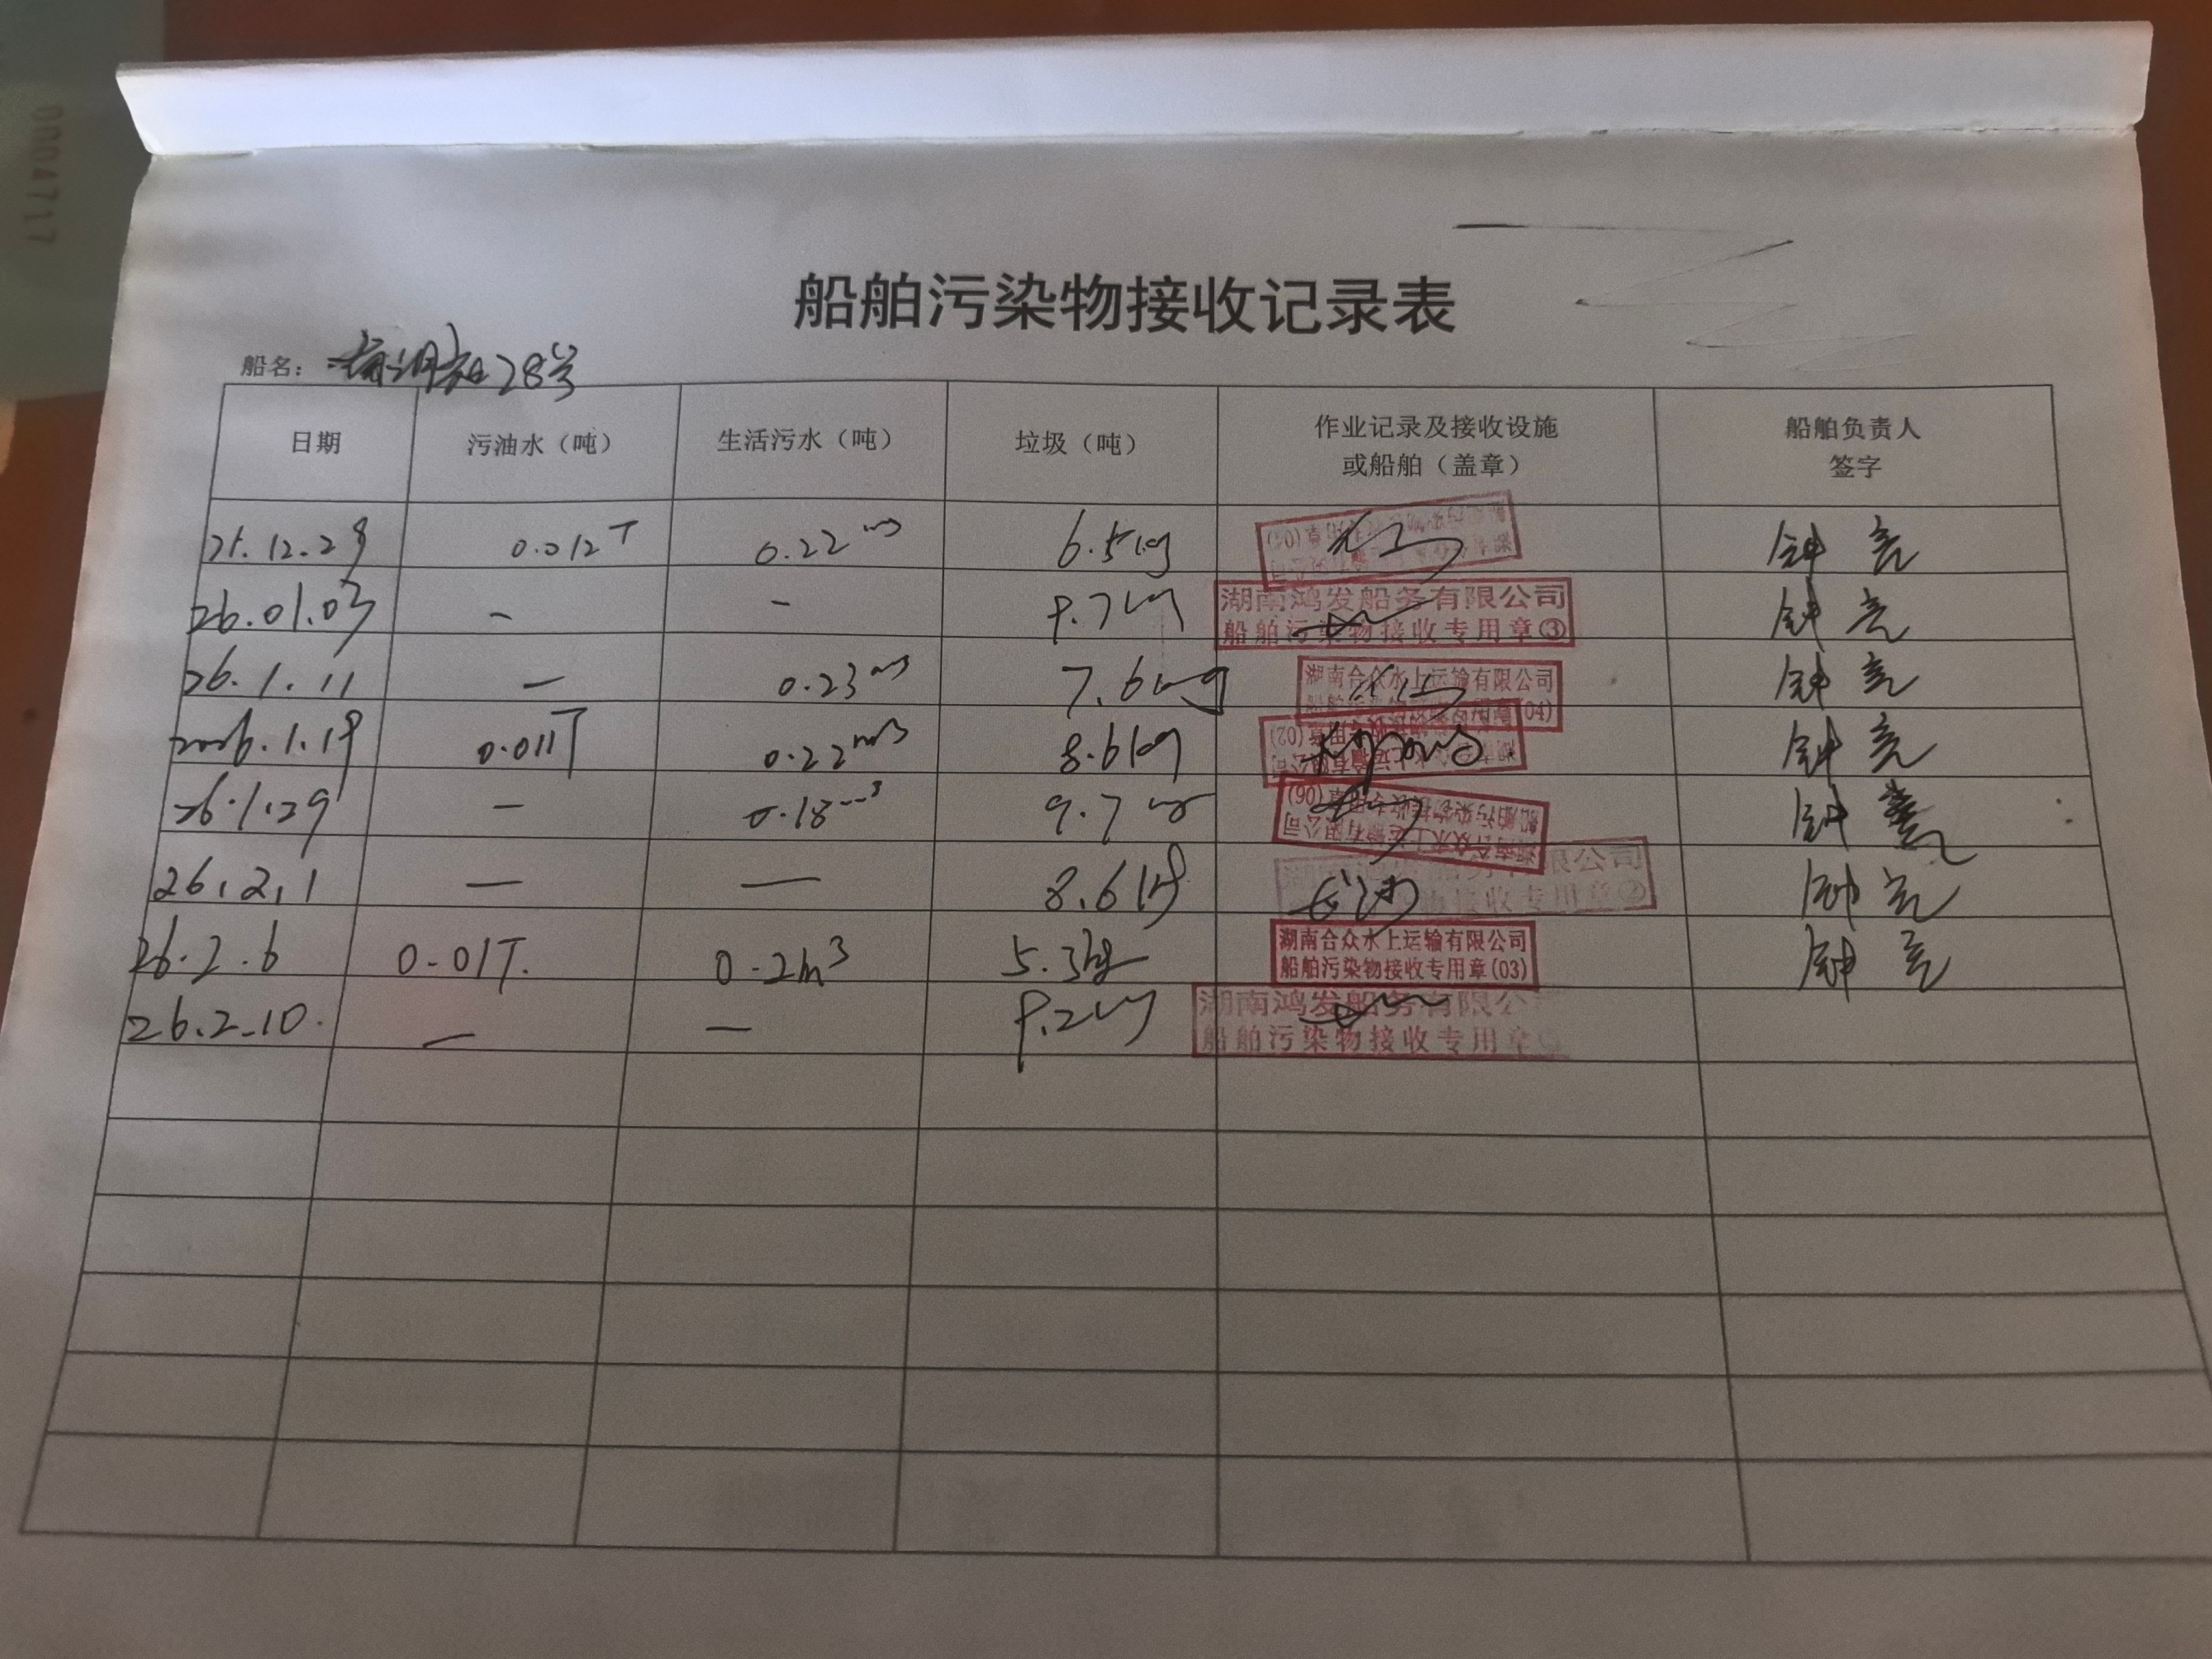 0004717
船舶污染物接收记录表
船名： 28号
日期 污油水（吨） 生活污水（吨） 垃圾（吨） 作业记录及接收设施或船舶（盖章） 船舶负责人签字
25.12.29 0.012T 0.22m³ 6.5kg 钟亮
26.01.03 — — 9.7kg 湖南鸿发船务有限公司 船舶污染物接收专用章③ 钟亮
26.1.11 — 0.23m³ 7.6kg 湖南合众水上运输有限公司 (04) 钟亮
2026.1.19 0.011T 0.22m³ 8.6kg (02) 钟亮
26.1.29 — 0.18m³ 9.7kg 湖南合众水上运输有限公司 船舶污染物接收专用章(06) 钟亮
26.2.1 — — 8.6kg 限公司 接收专用章② 钟亮
26.2.6 0.01T. 0.2m³ 5.3kg 湖南合众水上运输有限公司 船舶污染物接收专用章(03) 钟亮
26.2.10. — — 9.2kg 湖南鸿发船务有限公 船舶污染物接收专用章